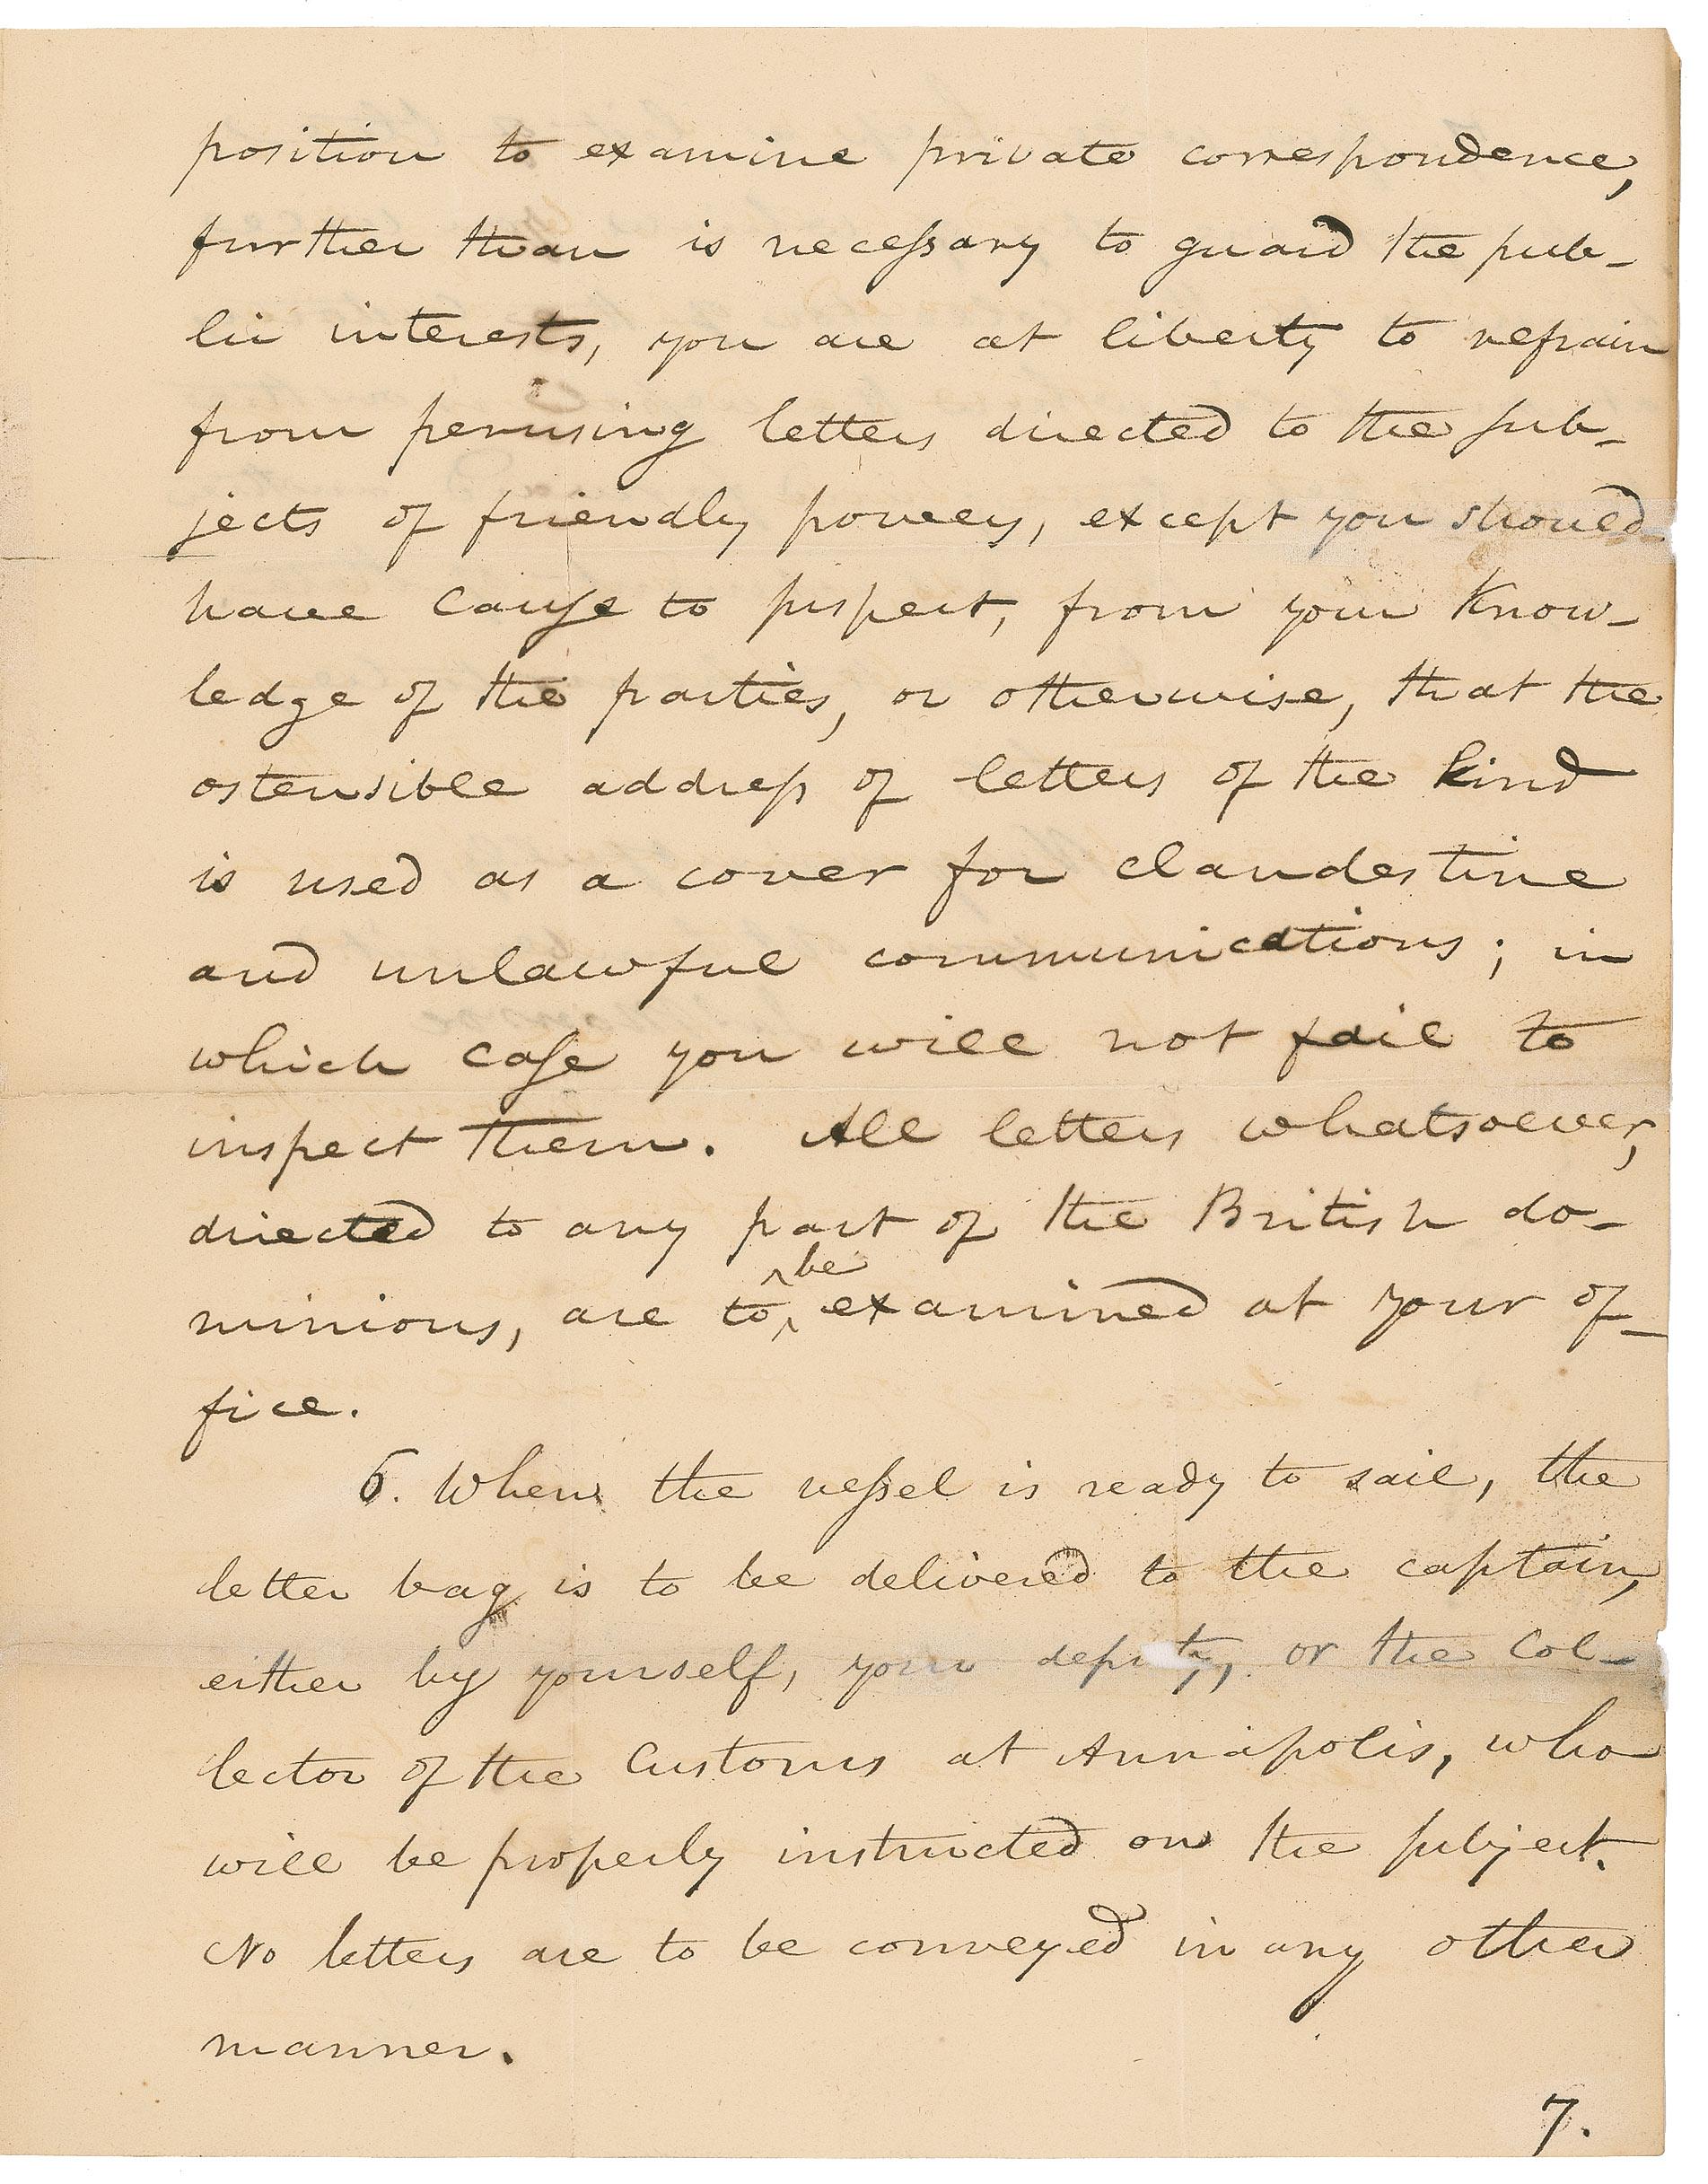 position to examine private correspondence,
further than is necessary to guard the pub-
lic interests, you are at liberty to refrain
from perusing letters directed to the sub-
jects of friendly powers, except you should
have cause to suspect, from your know-
ledge of the parties, or otherwise, that the
ostensible address of letters of the kind
is used as a cover for clandestine
and unlawful communications; in
which case you will not fail to
inspect them. All letters whatsoever,
directed to any part of the British do-
be
minions, are to examined at your of-
fice.
6. When the vessel is ready to sail, the
letter bag is to be delivered to the captain,
either by yourself, your deputy, or the Col-
lector of the Customs at Annapolis, who
will be properly instructed on the subject.
No letters are to be conveyed in any other
manner.
7.